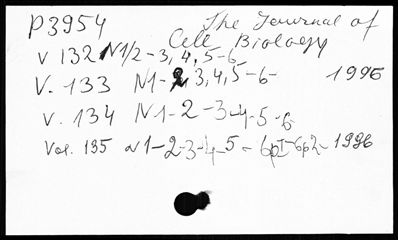 P3954 The Journal of
Cell Biology
V 132 N1/2-3,4,5-6
V. 133 N1-2 3,4,5-6- 1996
V. 134 N1-2-3-4-5-6
Vol. 135 N1-2-3-4-5-6pI-6p2- 1996